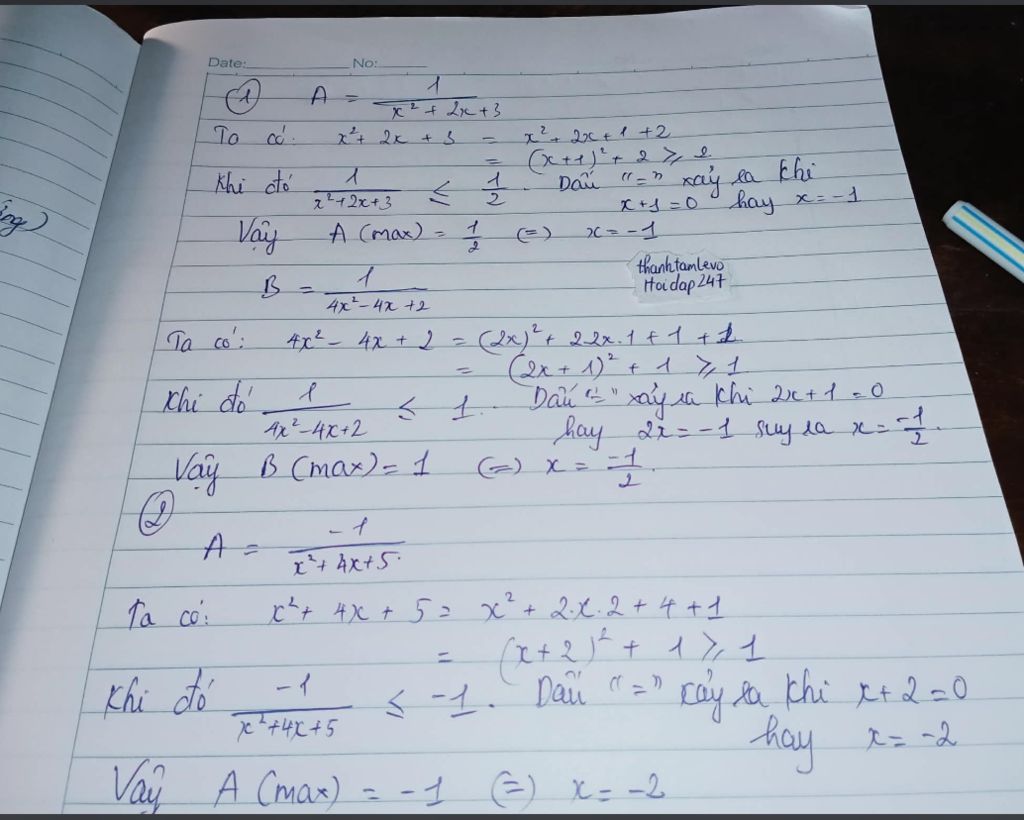 ng)
Date: No:
① A = 1/(x² + 2x + 3)
Ta có: x² + 2x + 3 = x² + 2x + 1 + 2
= (x+1)² + 2 ≥ 2
Khi đó 1/(x²+2x+3) ≤ 1/2. Dấu "=" xảy ra khi
x+1=0 hay x=-1
Vậy A (max) = 1/2 (=) x=-1
thanhtamlevo
Hoidap247
B = 1/(4x²-4x+2)
Ta có: 4x² - 4x + 2 = (2x)² + 2.2x.1 + 1 + 1
= (2x + 1)² + 1 ≥ 1
Khi đó 1/(4x²-4x+2) ≤ 1. Dấu "=" xảy ra khi 2x+1=0
hay 2x=-1 suy ra x=-1/2.
Vậy B (max) = 1 (=) x = -1/2.
②
A = -1/(x²+4x+5)
Ta có: x² + 4x + 5 = x² + 2.x.2 + 4 + 1
= (x+2)² + 1 ≥ 1
Khi đó -1/(x²+4x+5) ≤ -1. Dấu "=" xảy ra khi x+2=0
hay x=-2
Vậy A (max) = -1 (=) x=-2